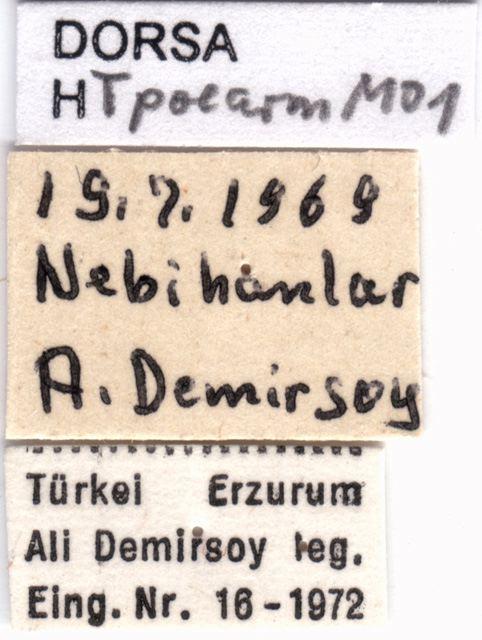 DORSA
HTpoearmM01
19.7.1969
Nebihanlar
A. Demirsoy
Türkei Erzurum
Ali Demirsoy leg.
Eing. Nr. 16-1972